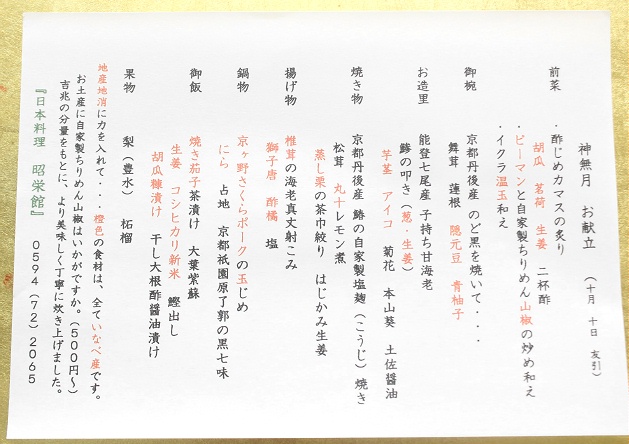 神無月　お献立　（十月　十日　友引）
前菜　・酢じめカマスの炙り
胡瓜　茗荷　生姜　二杯酢
・ピーマンと自家製ちりめん山椒の炒め和え
・イクラ温玉和え
御椀　京都丹後産　のど黒を焼いて・・・
舞茸　蓮根　隠元豆　青柚子
お造里　能登七尾産　子持ち甘海老
鯵の叩き（葱・生姜）
芋茎　アイコ　菊花　本山葵　土佐醤油
焼き物　京都丹後産　鰆の自家製塩麹（こうじ）焼き
松茸　丸十レモン煮
蒸し栗の茶巾絞り　はじかみ生姜
揚げ物　椎茸の海老真丈射こみ
獅子唐　酢橘　塩
鍋物　京ヶ野さくらポークの玉じめ
にら　占地　京都祇園原了郭の黒七味
御飯　焼き茄子茶漬け　大葉紫蘇
生姜　コシヒカリ新米　鰹出し
胡瓜糠漬け　干し大根酢醤油漬け
果物　梨（豊水）　柘榴
地産地消に力を入れて・・・橙色の食材は、全ていなべ産です。
お土産に自家製ちりめん山椒はいかがですか。（５００円～）
吉兆の分量をもとに、より美味しく丁寧に炊き上げました。
『日本料理　昭栄館』　０５９４（７２）２０６５